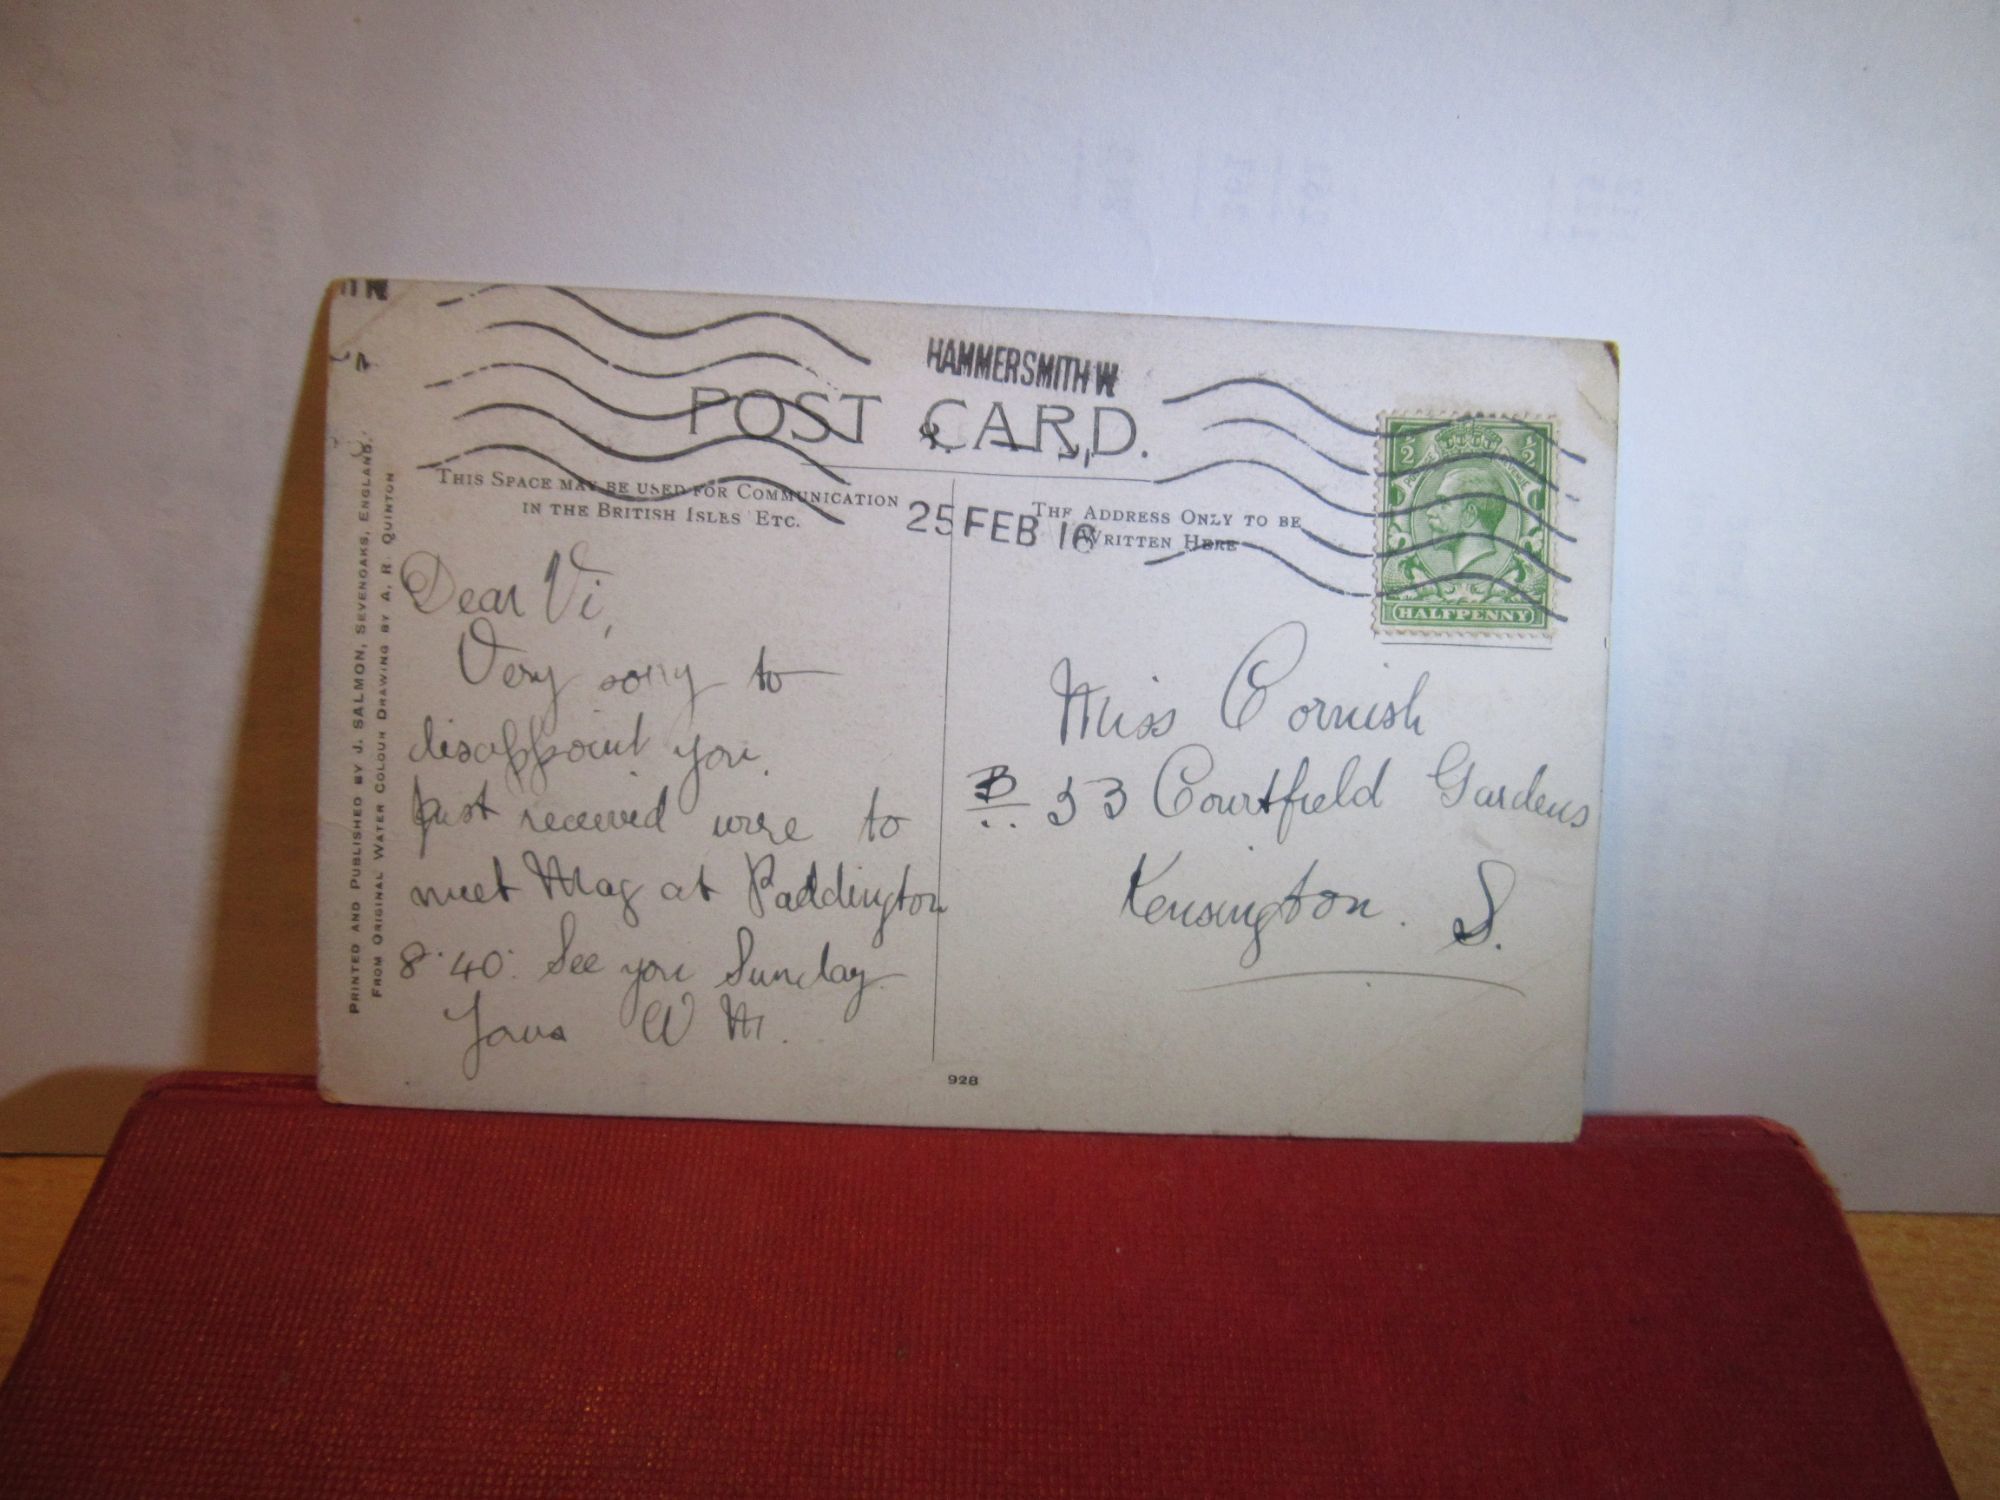 HAMMERSMITH W
POST CARD.
25 FEB 16
THIS SPACE MAY BE USED FOR COMMUNICATION
IN THE BRITISH ISLES ETC.
THE ADDRESS ONLY TO BE
WRITTEN HERE
½ ½
POSTAGE REVENUE
HALFPENNY
PRINTED AND PUBLISHED BY J. SALMON, SEVENOAKS, ENGLAND.
FROM ORIGINAL WATER COLOUR DRAWING BY A. R. QUINTON
Dear Vi,
Very sorry to
disappoint you.
Just received wire to
meet Mag at Paddington
8.40. See you Sunday.
Yours W M.
Miss Cornish
B 33 Courtfield Gardens
Kensington. S.
928